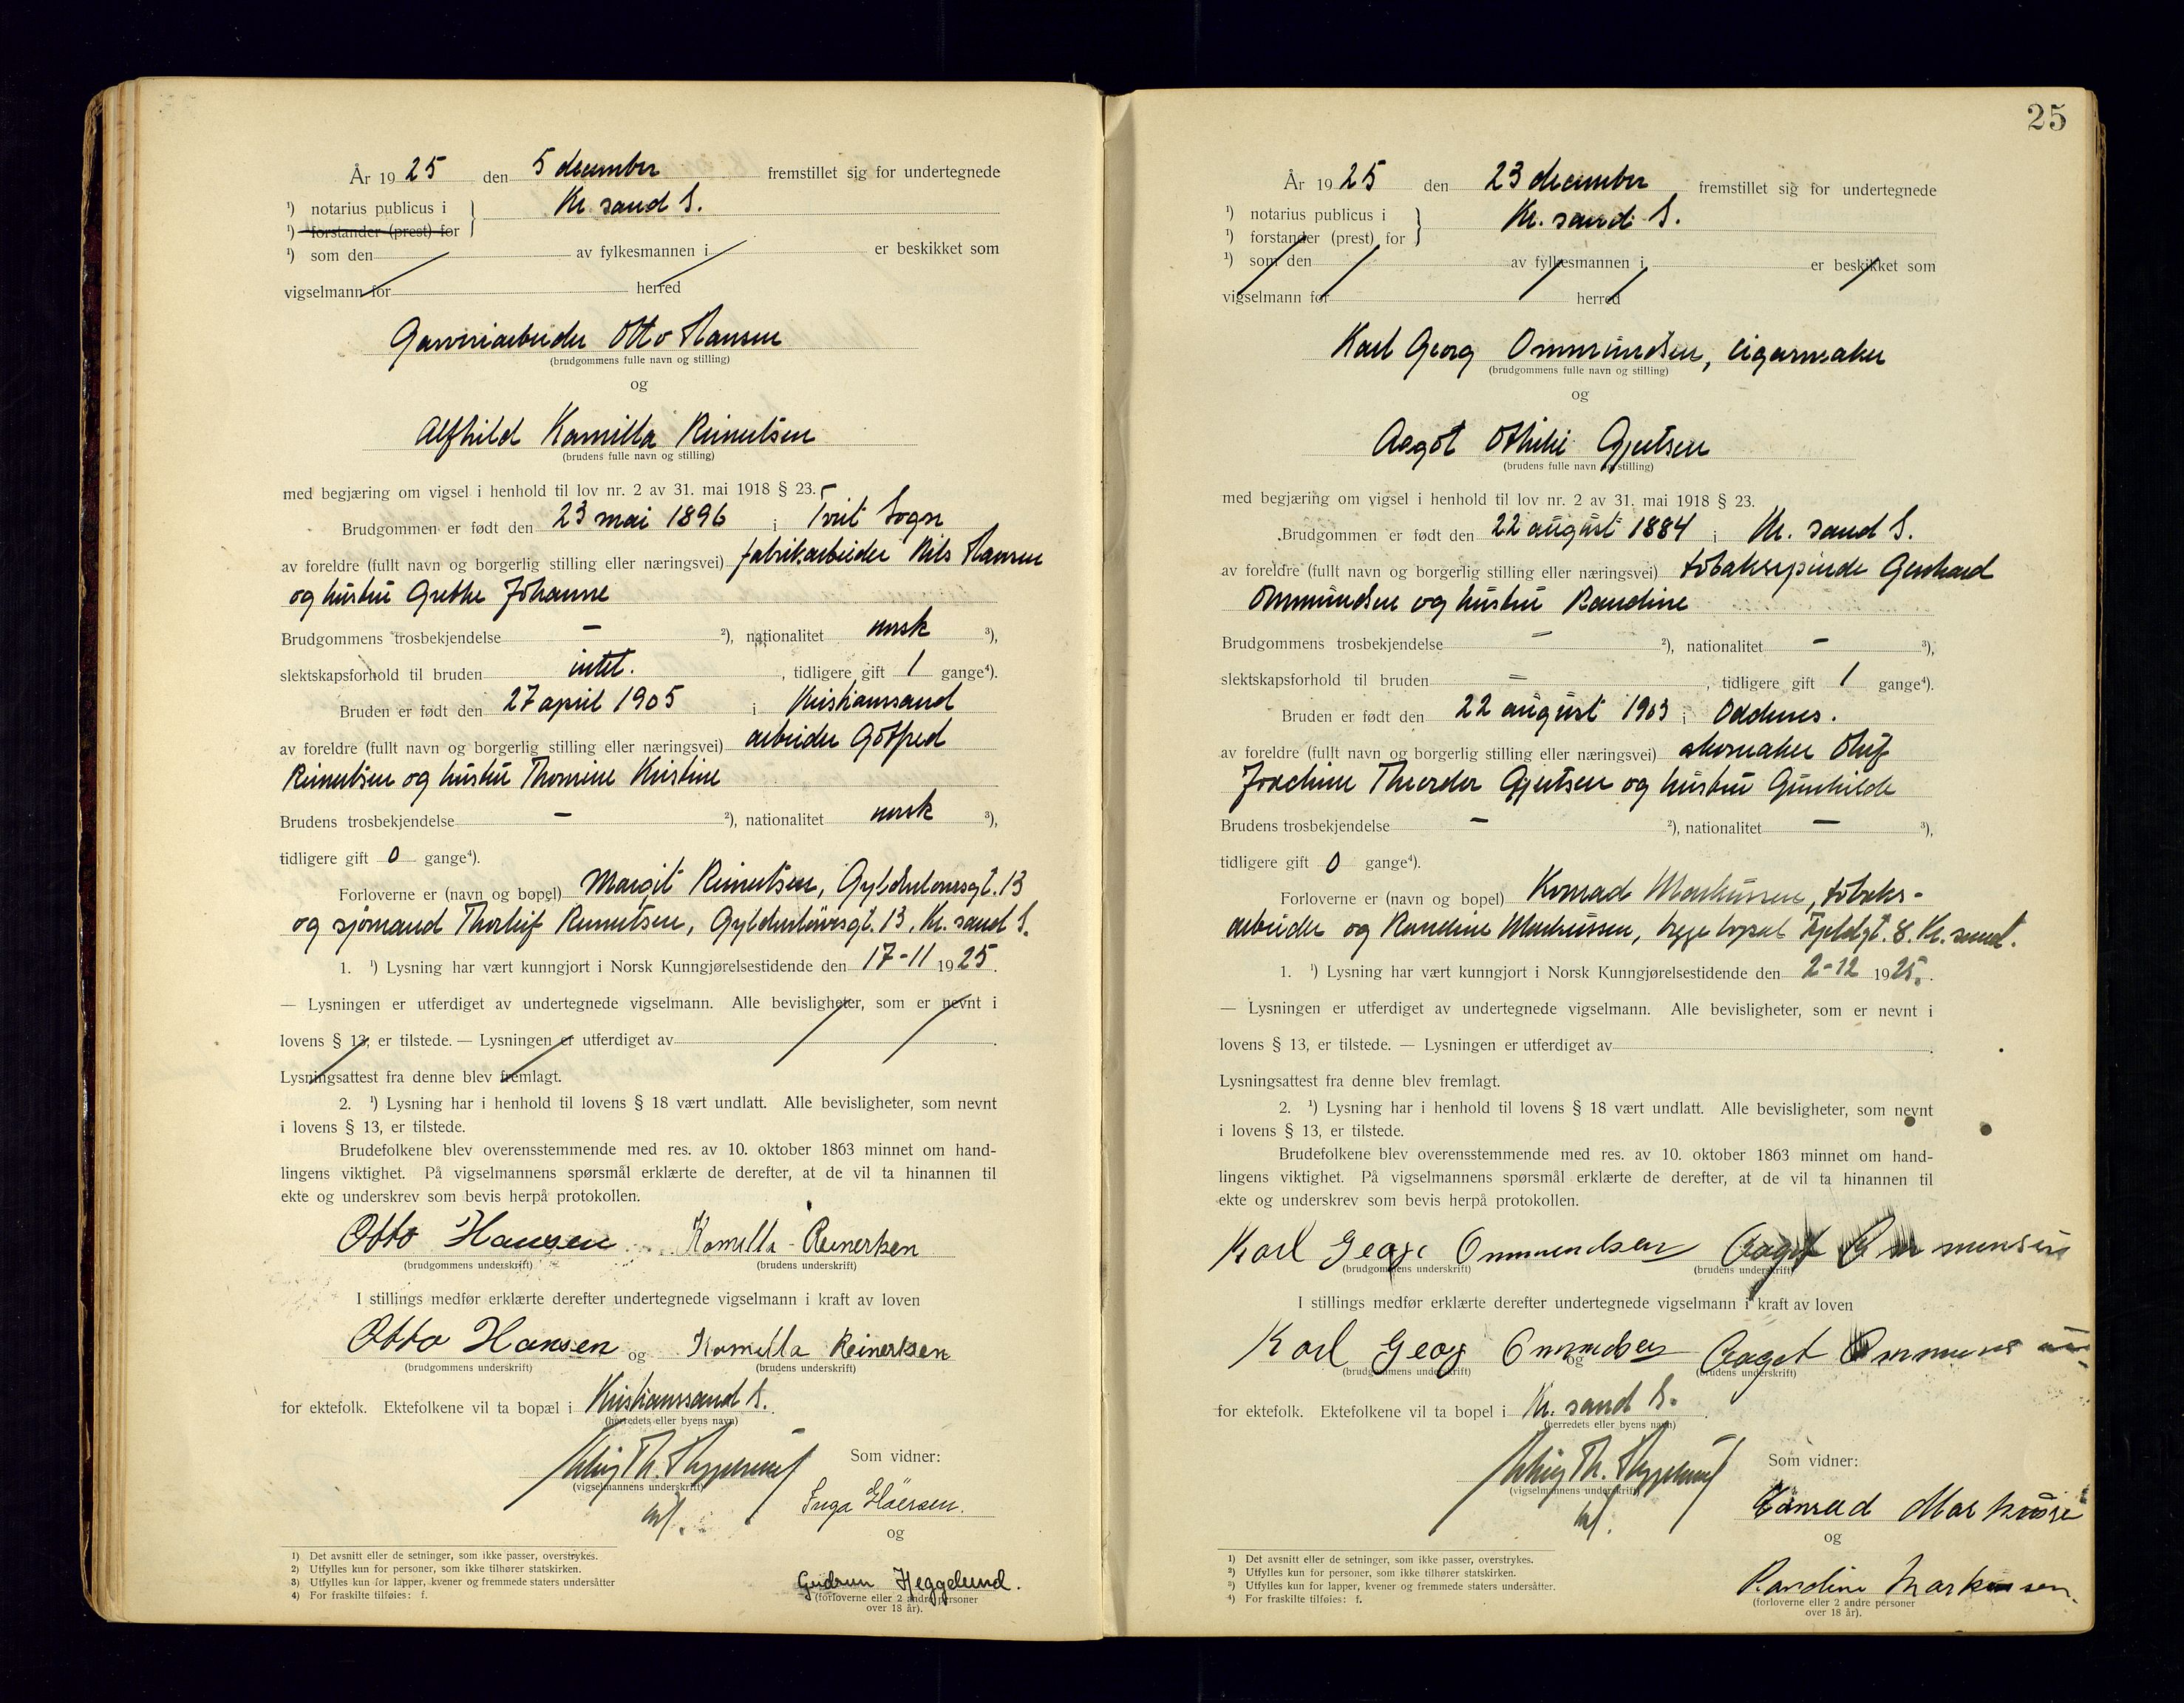 År 1925 den 5 december fremstillet sig for undertegnede
¹) notarius publicus i } Kr. sand S.
¹) forstander (prest) for
¹) som den av fylkesmannen i er beskikket som
vigselmann for herred
Garveriarbeider Otto Hansen
(brudgommens fulle navn og stilling)
og
Alfhild Kamilla Reinertsen
(brudens fulle navn og stilling)
med begjæring om vigsel i henhold til lov nr. 2 av 31. mai 1918 § 23.
Brudgommen er født den 23 mai 1896 i Tveit Sogn
av foreldre (fullt navn og borgerlig stilling eller næringsvei) fabrikarbeider Nils Hansen
og hustru Grethe Johanne
Brudgommens trosbekjendelse — ²), nationalitet norsk ³),
slektskapsforhold til bruden intet. , tidligere gift 1 gange⁴).
Bruden er født den 27 april 1905 i Kristianssand
av foreldre (fullt navn og borgerlig stilling eller næringsvei) arbeider Gotfred
Reinertsen og hustru Thomine Kristine
Brudens trosbekjendelse — ²), nationalitet norsk ³),
tidligere gift 0 gange⁴).
Forloverne er (navn og bopel) Margit Reinertsen, Gyldenløvesgt. 13
og sjömand Thorleif Reinertsen, Gyldenlövesgt. 13, Kr. sand S.
1. ¹) Lysning har vært kunngjort i Norsk Kunngjørelsestidende den 17-11 1925.
— Lysningen er utferdiget av undertegnede vigselmann. Alle bevisligheter, som er nevnt i
lovens § 13, er tilstede. — Lysningen er utferdiget av .
Lysningsattest fra denne blev fremlagt.
2. ¹) Lysning har i henhold til lovens § 18 vært undlatt. Alle bevisligheter, som nevnt
i lovens § 13, er tilstede.
Brudefolkene blev overensstemmende med res. av 10. oktober 1863 minnet om hand-
lingens viktighet. På vigselmannens spørsmål erklærte de derefter, at de vil ta hinannen til
ekte og underskrev som bevis herpå protokollen.
Otto Hansen Kamilla Reinertsen
(brudgommens underskrift) (brudens underskrift)
I stillings medfør erklærte derefter undertegnede vigselmann i kraft av loven
Otto Hansen og Kamilla Reinertsen
(brudgommens underskrift) (brudens underskrift)
for ektefolk. Ektefolkene vil ta bopæl i Kristianssand S.
(herredets eller byens navn)
Som vidner:
(vigselmannens underskrift)
Inga
og
Gudrun Heggelund.
(forloverne eller 2 andre personer
over 18 år).
1) Det avsnitt eller de setninger, som ikke passer, overstrykes.
2) Utfylles kun for personer, som ikke tilhører statskirken.
3) Utfylles kun for lapper, kvener og fremmede staters undersåtter
4) For fraskilte tilføies: f.
25
År 1925 den 23 december fremstillet sig for undertegnede
¹) notarius publicus i } Kr. sand S.
¹) forstander (prest) for
¹) som den av fylkesmannen i er beskikket som
vigselmann for herred
Karl Georg Ommundsen, cigarmaker
(brudgommens fulle navn og stilling)
og
Aagot Othilie Gjertsen
(brudens fulle navn og stilling)
med begjæring om vigsel i henhold til lov nr. 2 av 31. mai 1918 § 23.
Brudgommen er født den 22 august 1884 i Kr. sand S.
av foreldre (fullt navn og borgerlig stilling eller næringsvei) tobakspinder Gerhard
Ommundsen og hustru Randine
Brudgommens trosbekjendelse — ²), nationalitet — ³),
slektskapsforhold til bruden — , tidligere gift 1 gange⁴).
Bruden er født den 22 august 1903 i Oddernes.
av foreldre (fullt navn og borgerlig stilling eller næringsvei) skomaker Oluf
Joachim Theodor Gjertsen og hustru Gunhilde
Brudens trosbekjendelse — ²), nationalitet — ³),
tidligere gift 0 gange⁴).
Forloverne er (navn og bopel) Konrad Markussen, tobaks-
arbeider og Randine Markussen, begge bopæl 8. Kr. sand.
1. ¹) Lysning har vært kunngjort i Norsk Kunngjørelsestidende den 2-12 1925.
— Lysningen er utferdiget av undertegnede vigselmann. Alle bevisligheter, som er nevnt i
lovens § 13, er tilstede. — Lysningen er utferdiget av .
Lysningsattest fra denne blev fremlagt.
2. ¹) Lysning har i henhold til lovens § 18 vært undlatt. Alle bevisligheter, som nevnt
i lovens § 13, er tilstede.
Brudefolkene blev overensstemmende med res. av 10. oktober 1863 minnet om hand-
lingens viktighet. På vigselmannens spørsmål erklærte de derefter, at de vil ta hinannen til
ekte og underskrev som bevis herpå protokollen.
Karl Georg Ommundsen Aagot Ommunsen
(brudgommens underskrift) (brudens underskrift)
I stillings medfør erklærte derefter undertegnede vigselmann i kraft av loven
Karl Georg og Aagot
(brudgommens underskrift) (brudens underskrift)
for ektefolk. Ektefolkene vil ta bopel i Kr. sand S.
(herredets eller byens navn)
Som vidner:
(vigselmannens underskrift)
og
Randine Markussen.
(forloverne eller 2 andre personer
over 18 år).
¹) Det avsnitt eller de setninger, som ikke passer, overstrykes.
²) Utfylles kun for personer, som ikke tilhører statskirken.
³) Utfylles kun for lapper, kvener og fremmede staters undersåtter.
⁴) For fraskilte tilføies: f.